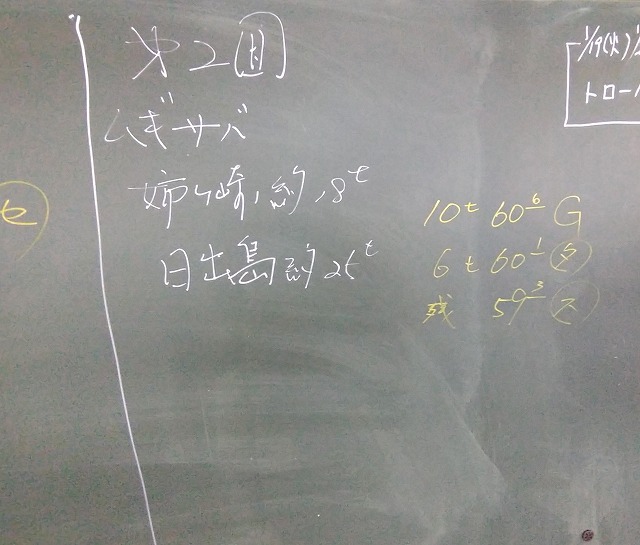 セ
才2回
ムギサバ
姉ヶ崎 約18t
日出島 約25t
10t 60 6 G
6t 60 1 タ
残 59 3 ス
1/19(火)
トロール